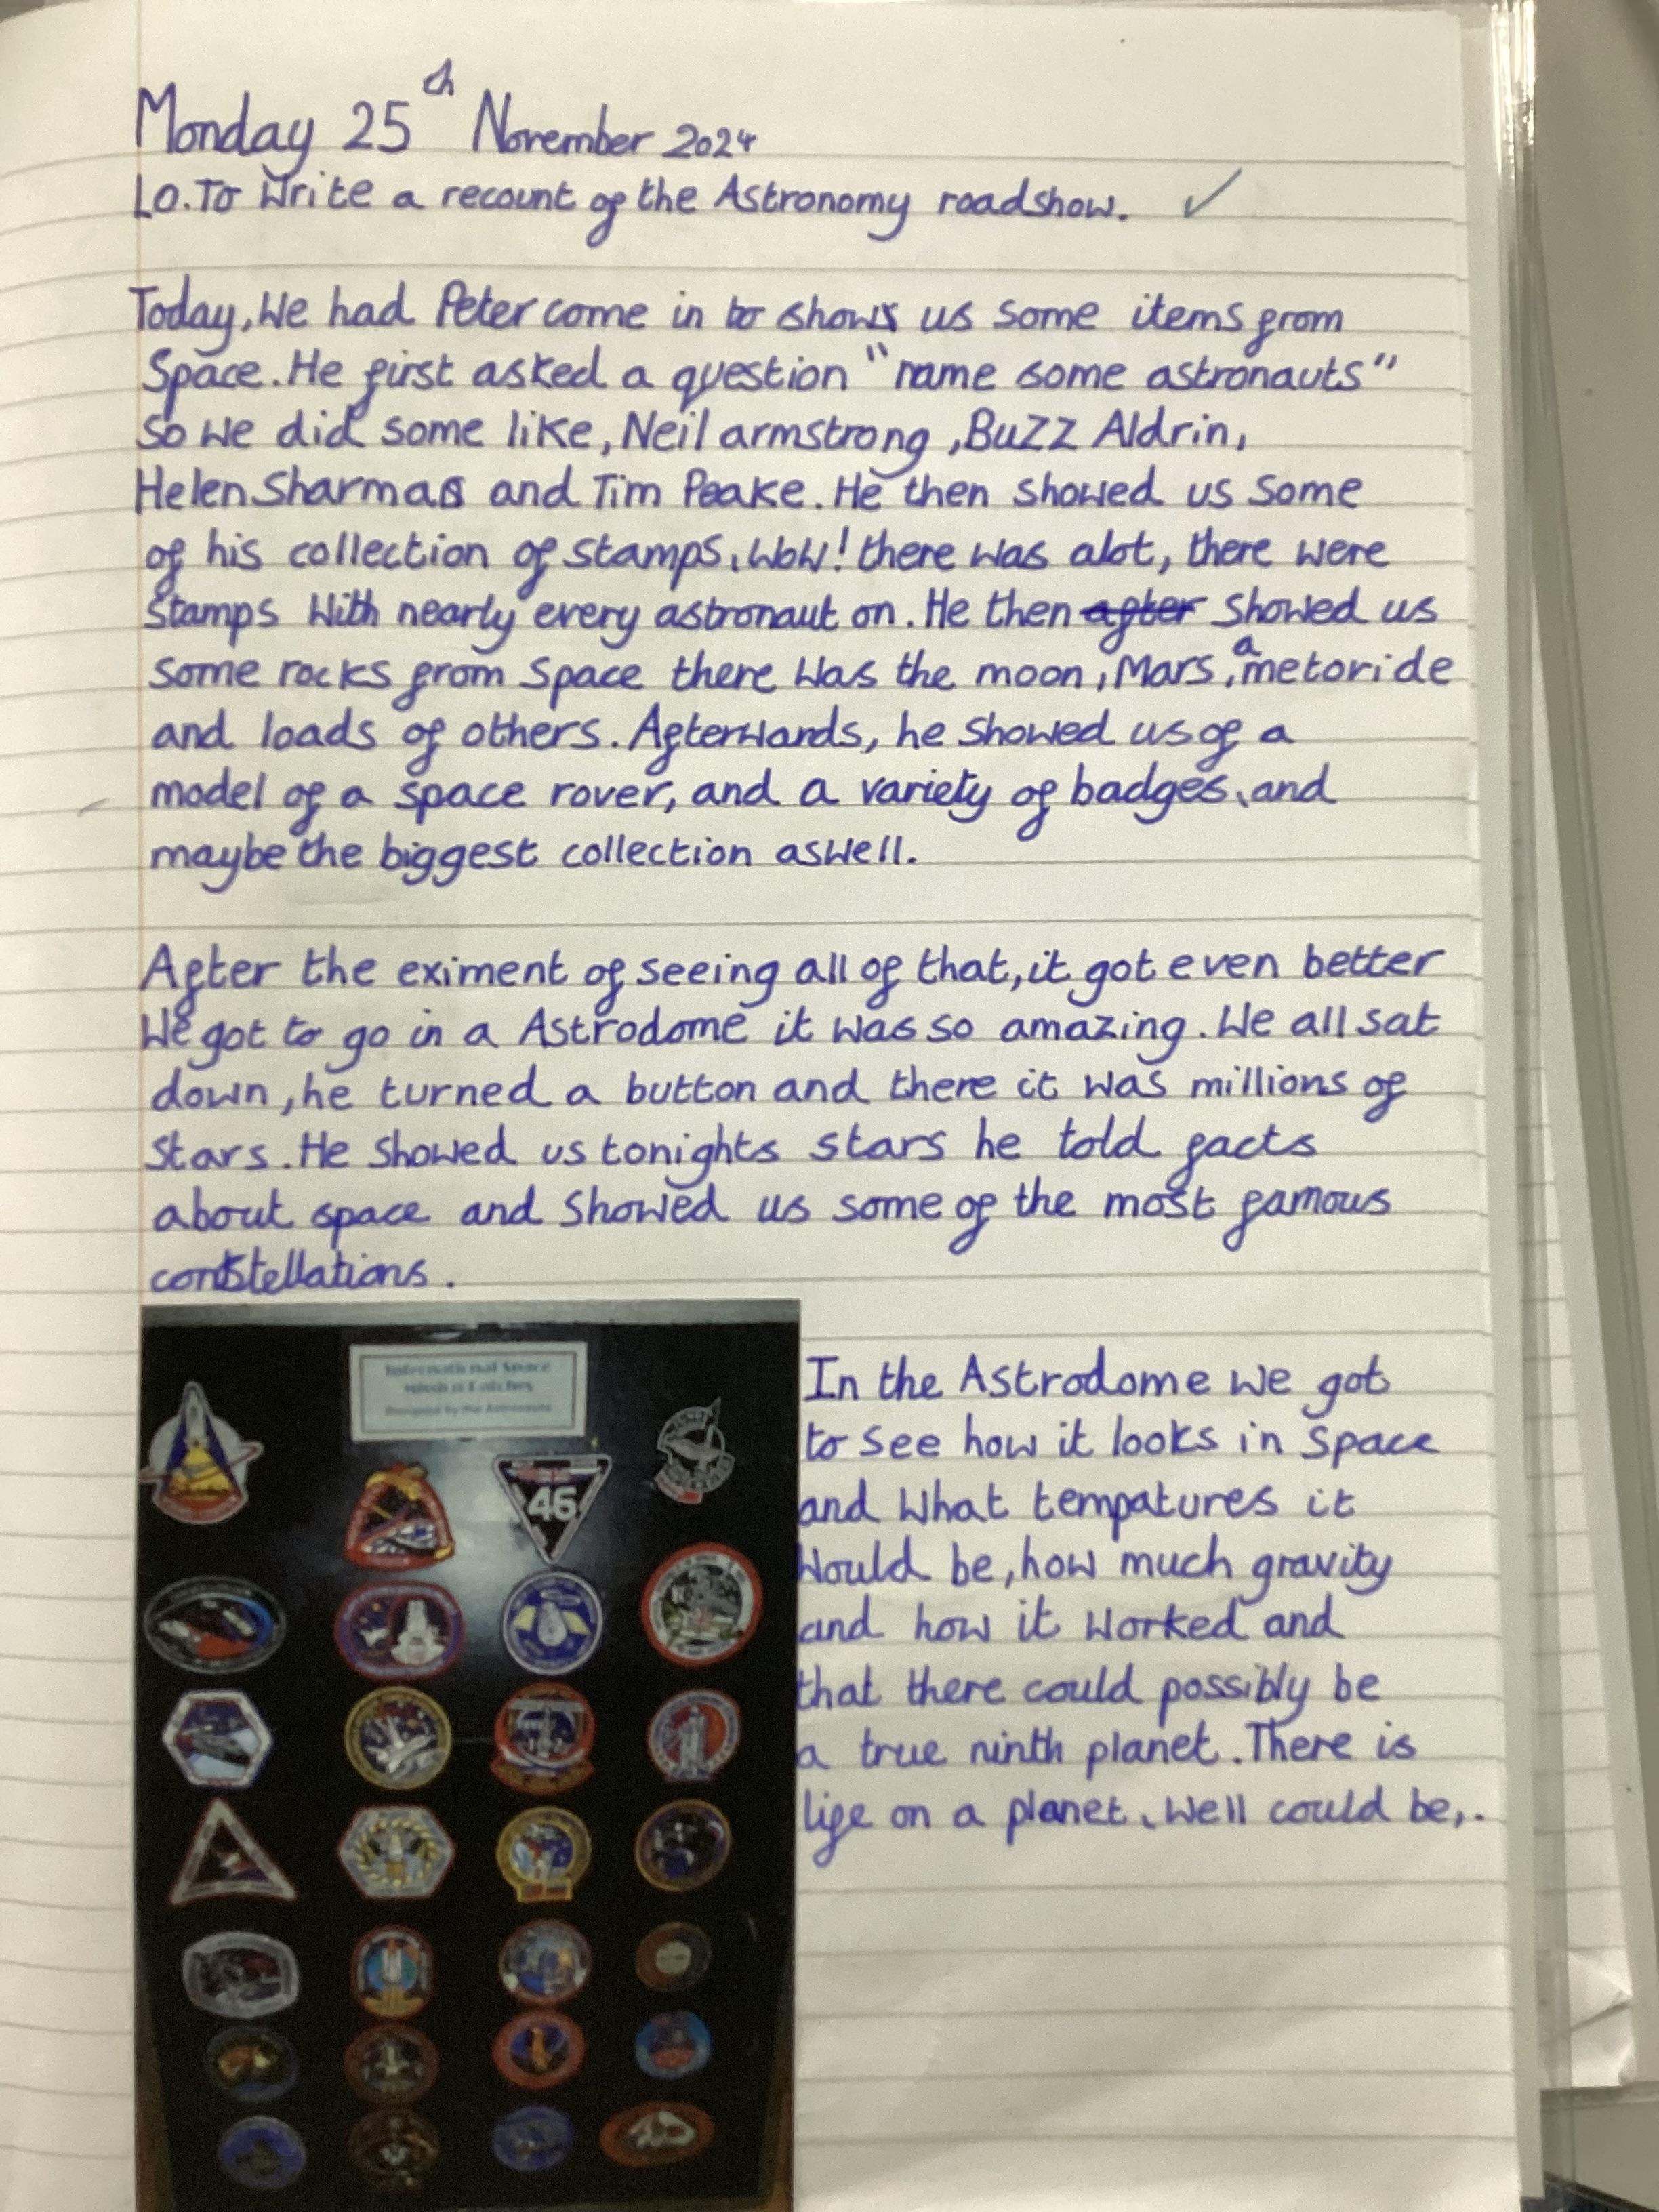 Monday 25th November 2024
LO. To Write a recount of the Astronomy roadshow.
Today, We had Peter come in to shows us some items from
Space. He first asked a question "name some astronauts"
So we did some like, Neil armstrong, Buzz Aldrin,
Helen Sharmas and Tim Peake. He then showed us some
of his collection of stamps, WoW! there was alot, there were
stamps With nearly every astronaut on. He then after showed us
some rocks from space there was the moon, Mars, a metoride
and loads of others. Afterwards, he showed us of a
model of a space rover, and a variety of badges, and
maybe the biggest collection aswell.
After the eximent of seeing all of that, it got even better
We got to go in a Astrodome it was so amazing. We all sat
down, he turned a button and there it was millions of
stars. He showed us tonights stars he told facts
about space and showed us some of the most famous
constellations.
International Space
Designed by the Astronauts
46
In the Astrodome we got
to see how it looks in space
and what tempatures it
would be, how much gravity
and how it worked and
that there could possibly be
a true ninth planet. There is
life on a planet, Well could be,.